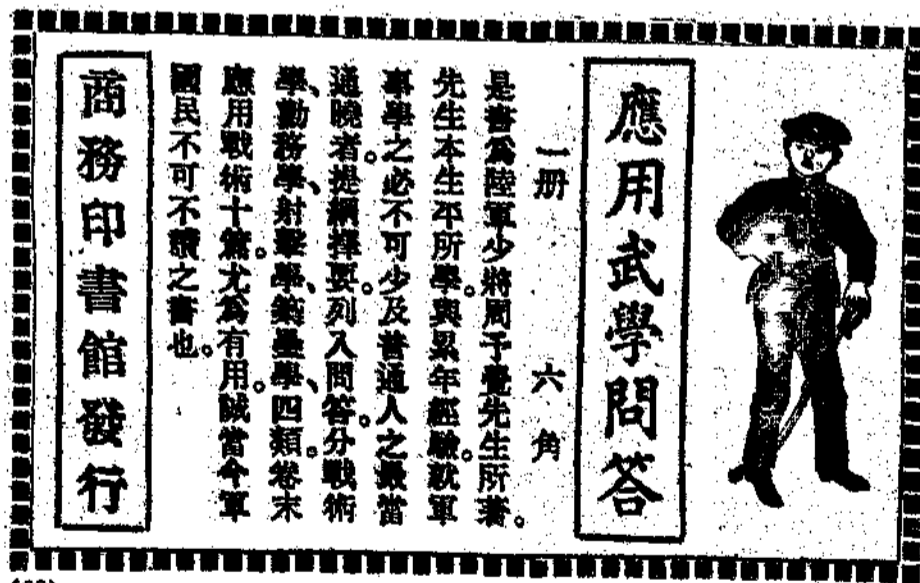 應用武學問答
一册 六角
是書爲陸軍少將周子覺先生所著。
先生本生平所學。與累年經驗。就軍
事學之必不可少及普通人之最當
通曉者。提綱擇要。列入問答。分戰術
學、勤務學、射擊學、築壘學、四類。卷末
應用戰術十篇。尤爲有用。誠當今軍
國民不可不讀之書也。
商務印書館發行